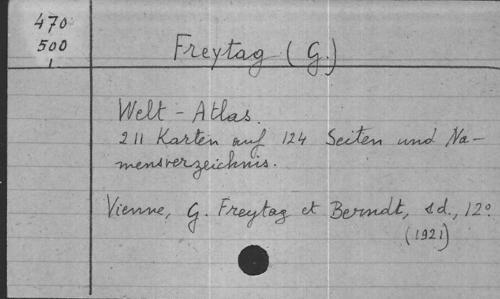 470
500
1
Freytag (G.)
Welt-Atlas.
211 Karten auf 124 Seiten und Na-
mensverzeichnis.
Vienne, G. Freytag et Berndt, s.d., 12º.
(1921)